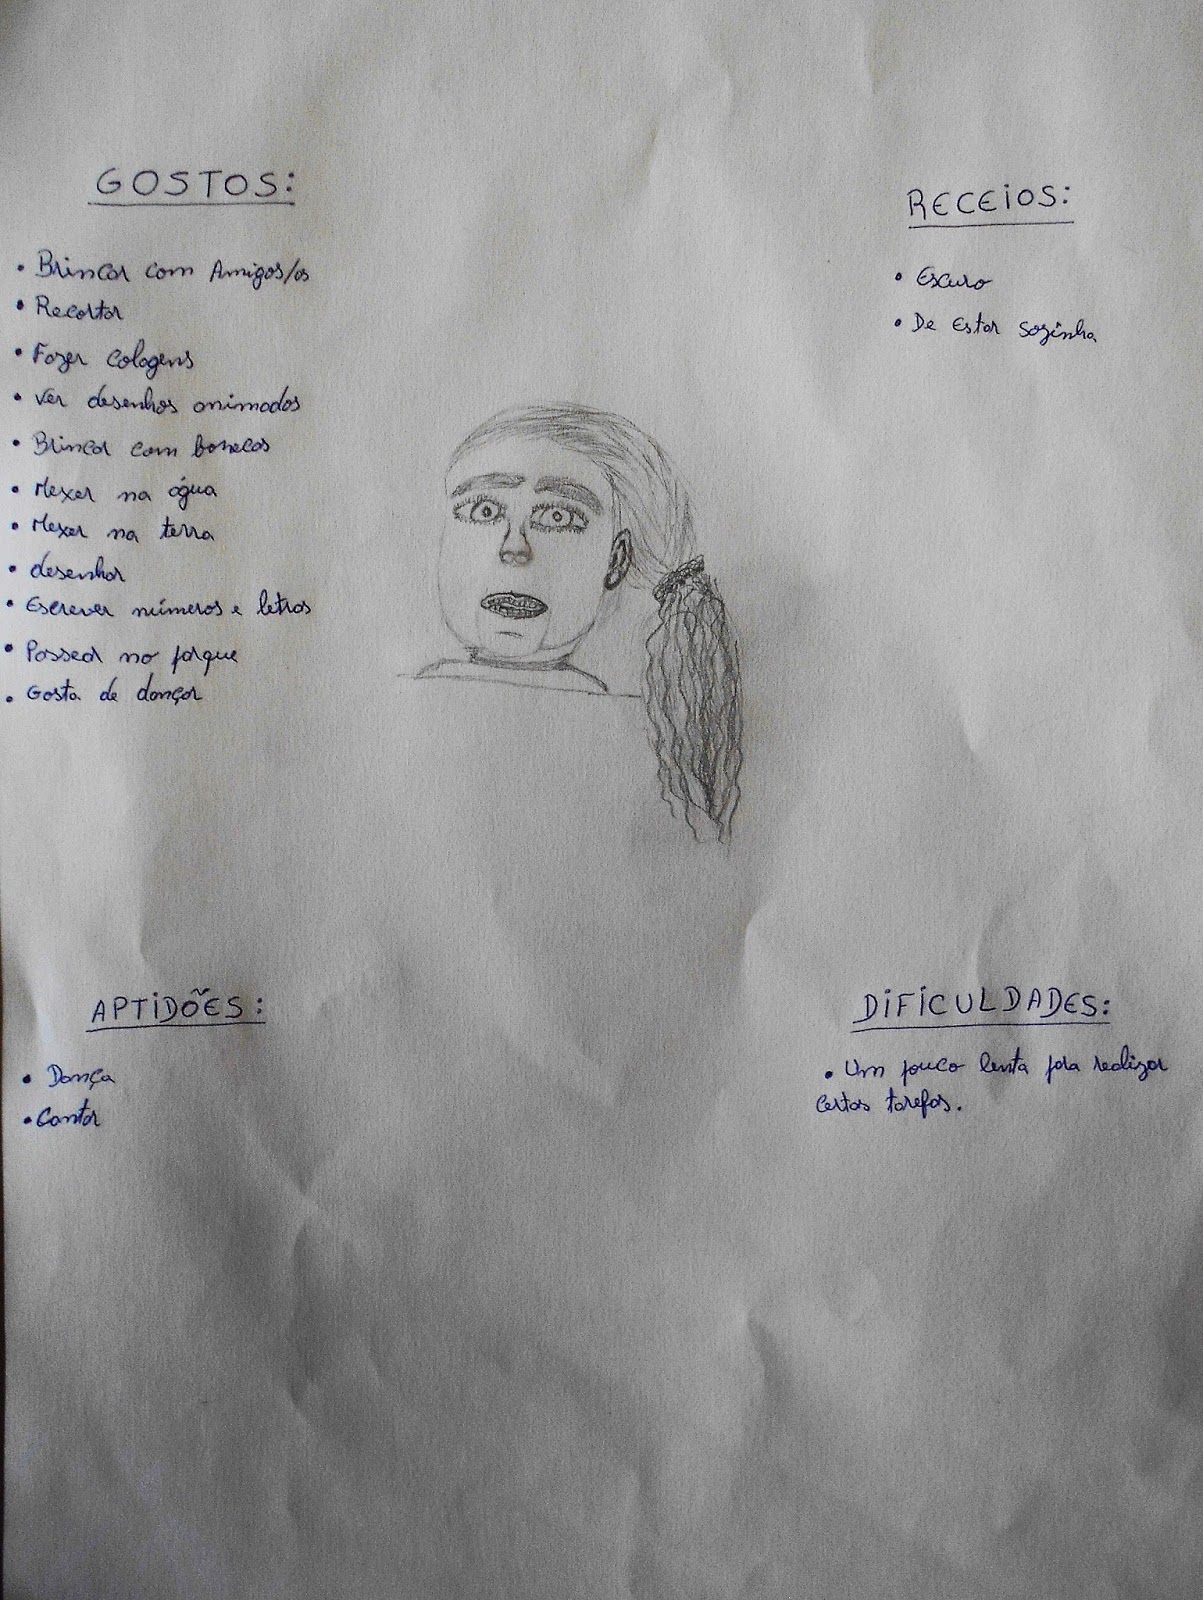 GOSTOS:
• Brincar com Amigos/os
• Recortar
• Fazer colagens
• Ver desenhos animados
• Brincar com bonecos
• Mexer na água
• Mexer na terra
• desenhar
• Escrever números e letras
• Passear no parque
• Gosta de dançar
RECEIOS:
• Escuro
• De Estar sozinha
APTIDÕES:
• Dança
• Cantar
DIFICULDADES:
• Um pouco lenta para realizar
certas tarefas.